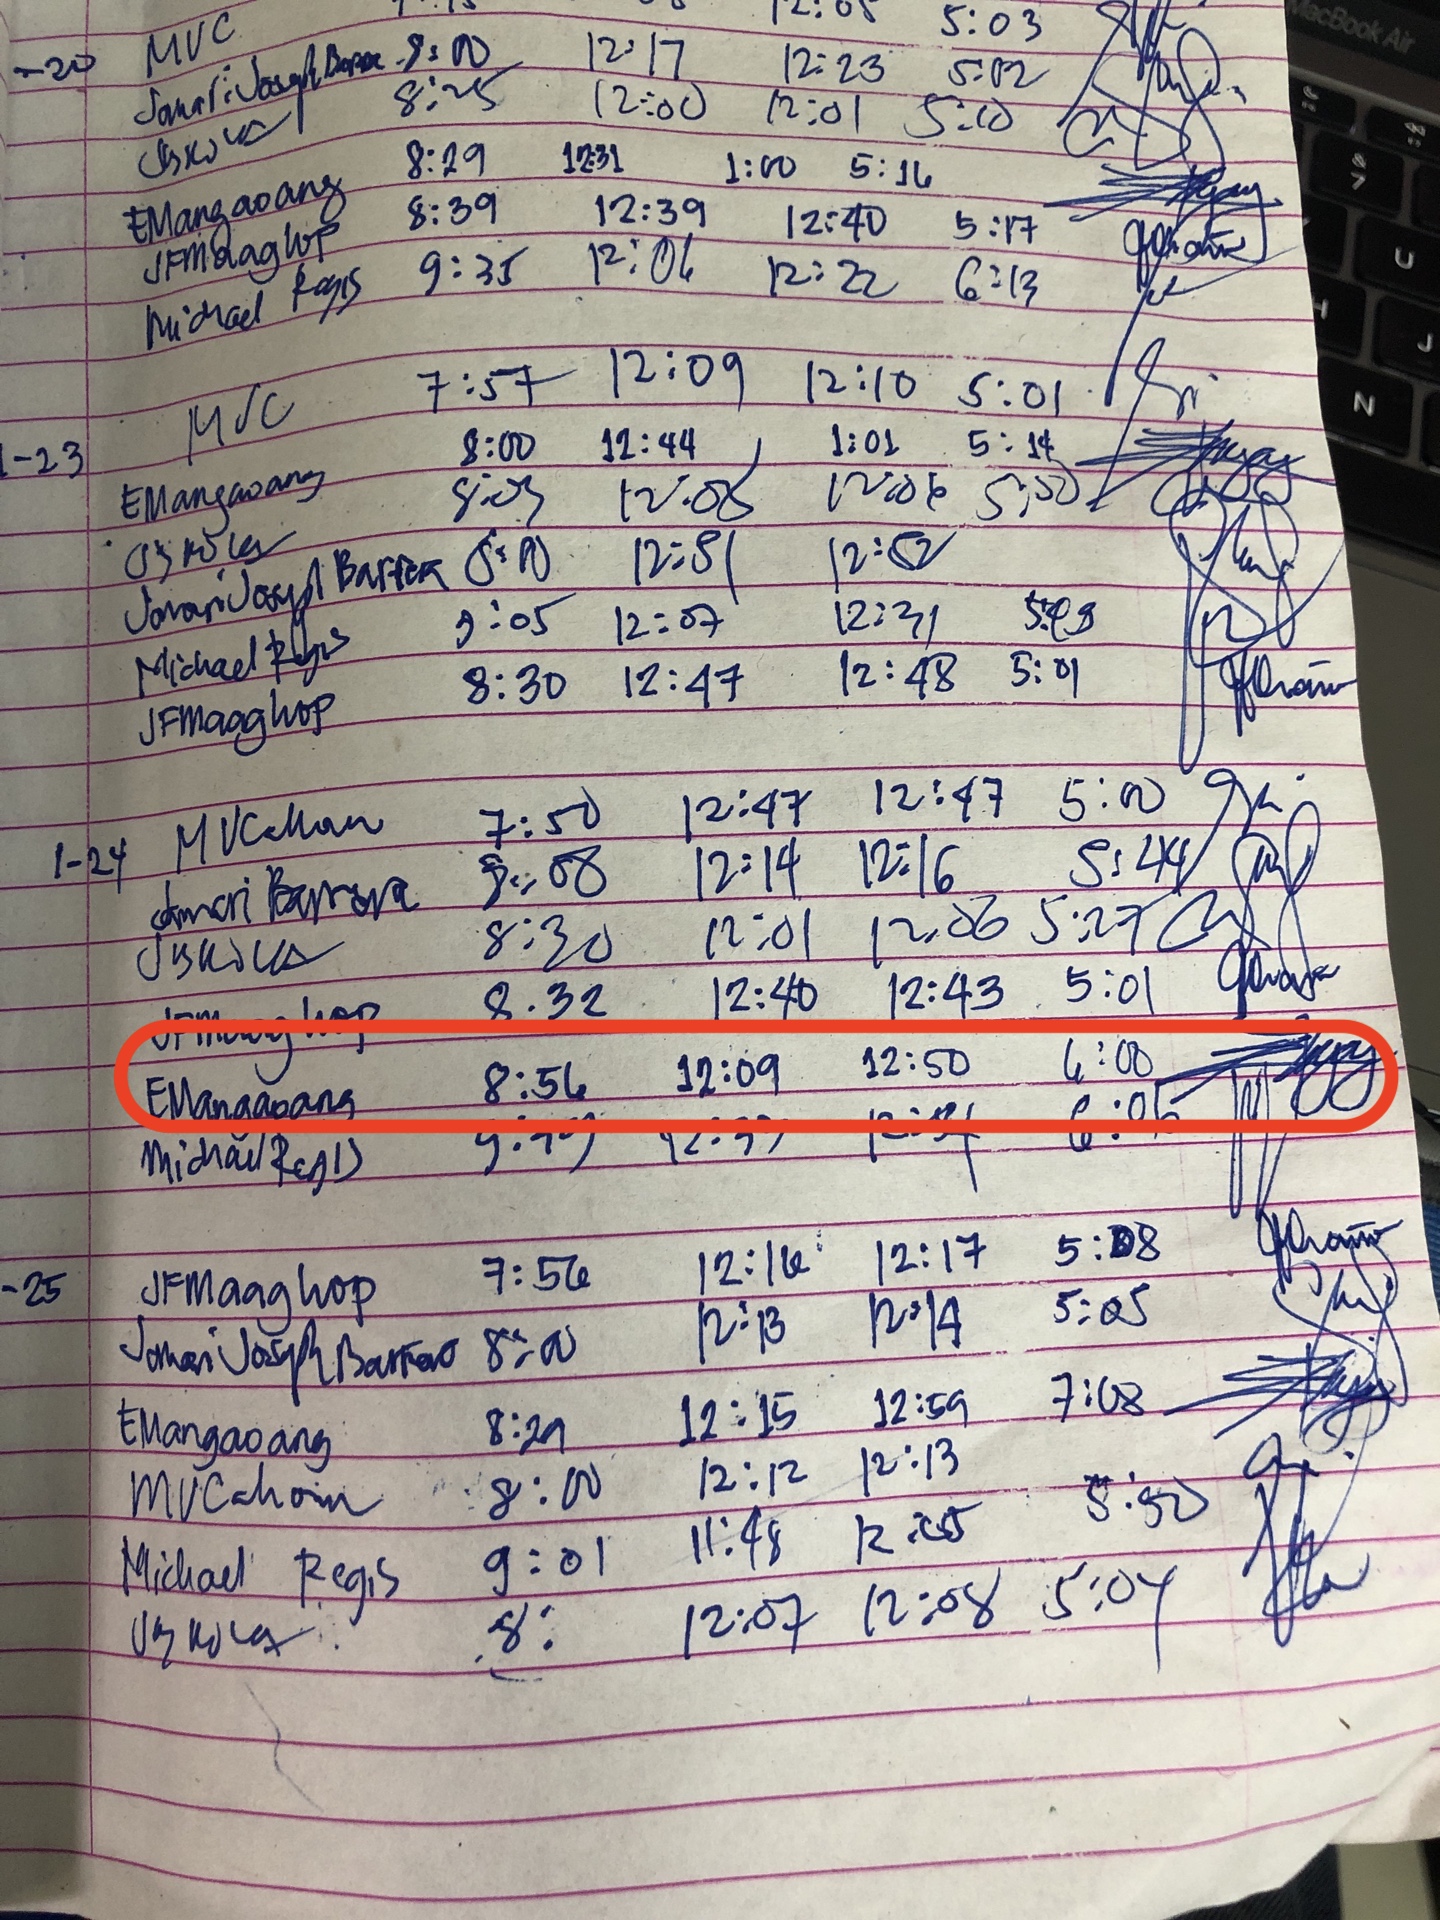 MacBook Air
-20 MVC 12:08 5:03
Jomari Joseph 8:00 12:17 12:23 5:02
8:25 12:00 12:01 5:10
EMangaoang 8:29 12:31 1:00 5:16
JFMaaghop 8:39 12:39 12:40 5:17
Michael Regis 9:35 12:06 12:22 6:13
1-23 MVC 7:57 12:09 12:10 5:01
EMangaoang 8:00 12:44 1:01 5:14
12:06 12:06 5:00
Jomari Joseph Barrera 8:00 12:51 12:52
Michael Regis 9:05 12:07 12:31
JFMaaghop 8:30 12:47 12:48 5:01
1-24 MVCahoan 7:50 12:47 12:47 5:00
Jomari Barrera 12:14 12:16 5:44
8:30 12:01 12:06 5:27
JFMaaghop 8:32 12:40 12:43 5:01
EMangaoang 8:56 12:09 12:50 6:00
Michael Regis
-25 JFMaaghop 7:56 12:16 12:17 5:08
Jomari Joseph Barrera 8:00 12:13 12:14 5:05
EMangaoang 8:29 12:15 12:59 7:08
MVCahoan 8:00 12:12 12:13
Michael Regis 9:01 11:48 12:05 5:50
8: 12:07 12:08 5:04